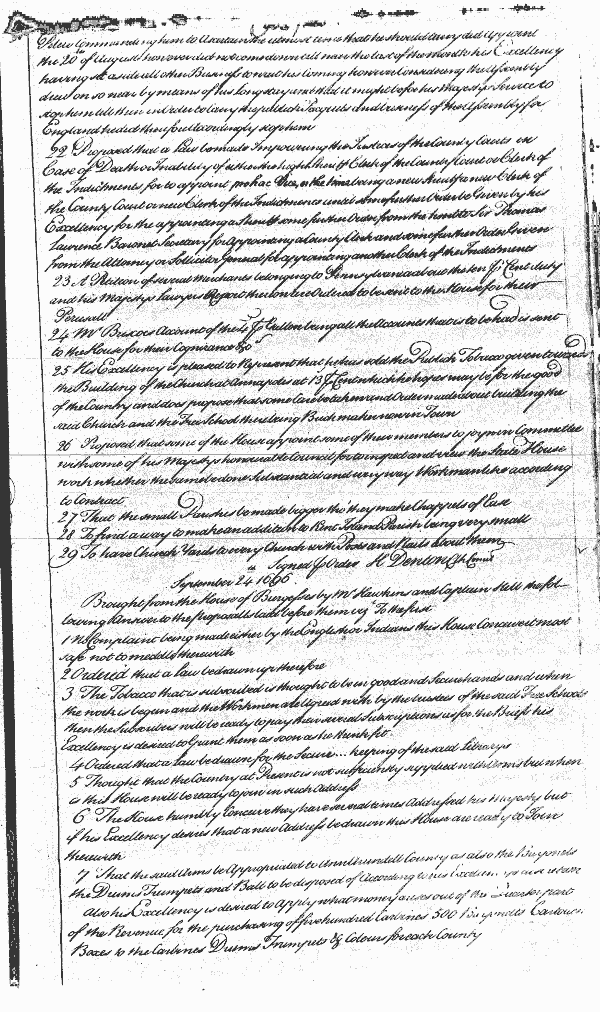 Pelew Commanding him to ascertain the utmost time that he should stay did appoint
the 20 of August however did not come down till near the last of the month his Excellency
having set aside all other Business to wait his Coming however considering the Assembly
drew on so near by means of his long stay and that it might be for his Majestys Service to
stop him till then in order to carry the publick Pacquets and business of the Assembly for
England he did therefore accordingly stop him
22 Proposed that a Law be made Impowering the Justices of the County Courts in
Case of Death or Inability of either the high Sheriff Clerk of the County Court or Clerk of
the Indictments for to appoint pro hac Vice, or the time being a new Sheriff a new Clerk of
the County Court or a new Clerk of the Indictments until some further Order be Given by his
Excellency for the appointing a Sheriff some further Order from the hon:ble Sir Thomas
Laurence Baronet Secretary for Appointing a County Clerk and some further Order Given
from the Attorney or Sollicitor General for appointing another Clerk of the Indictments
23 A Petition of several Merchants belonging to Pennsylvania about the ten p Cent duty
and his Majestys Lawyers Report thereon are Ordered to be sent to the House for their
Perusall
24 Mr Briscos Account of the 4d p Gallon being all the Accounts that is to be had is sent
to the House for their Cognizance &c
25 His Excellency is pleased to Represent that he has sold the Publick Tobacco given towards
the Building of the Church at Annapolis at 13/ p Cent which he hopes may be for the good
of the Country and does propose that some Care be taken and Order made about building the
said Church and the Free School there being Brick maker now in Town
26 Proposed that some of the House appoint some of their members to joyn in Committee
with some of his Majestys honourable Council for to inspect and view the State House
work whether the same be done Substantial and very way Workmanlike according
to Contract
27 That the small Parishes be made bigger tho' they make Chappels of Ease
28 To find a way to make an addition to Kent Island Parish being very small
29 To have Church Yards to every Church with Posts and Rails about them
Signed p Order H Denton Clk Council
September 24 1696.
Brought from the House of Burgesses by Mr Hawkins and Captain Hill the fol
lowing answer to the proposalls laid before them viz To the first
1 No Complaint being made either by the English or Indians this House Conceives most
safe not to meddle therewith
2 Ordered that a law be drawn up therefore
3 The Tobacco that is subscribed is thought to be in good and Secure hands and when
the work is begun and the Workmen are agreed with by the trustees of the said Free Schools
then the Subscribers will be ready to pay their several Subscriptions as for the Briefs his
Excellency is desired to Grant them as soon as he thinks fit.
4 Ordered that a Law be drawn for the Secure ... keeping of the said Librarys
5 Thought that the Country at Present is not sufficiently supplied with Arms but when
is this House will be ready to joyn in such Address
6 The House humbly Conceive they have several times Addressed his Majesty but
if his Excellency desires that a new Address be drawn this House are ready to Joyn
therewith
7 That the said Arms be Appropriated to Ann Arundell County as also the Bayonets
the Drums Trumpets and Ball to be disposed of According to his Excellencys
also his Excellency is desired to apply what money arises out of the Quarter part
of the Revenue for the purchasing of five hundred Carbines 500 Bayonetts Cartouch
Boxes to the Carbines Drums Trumpets & Colours for each County